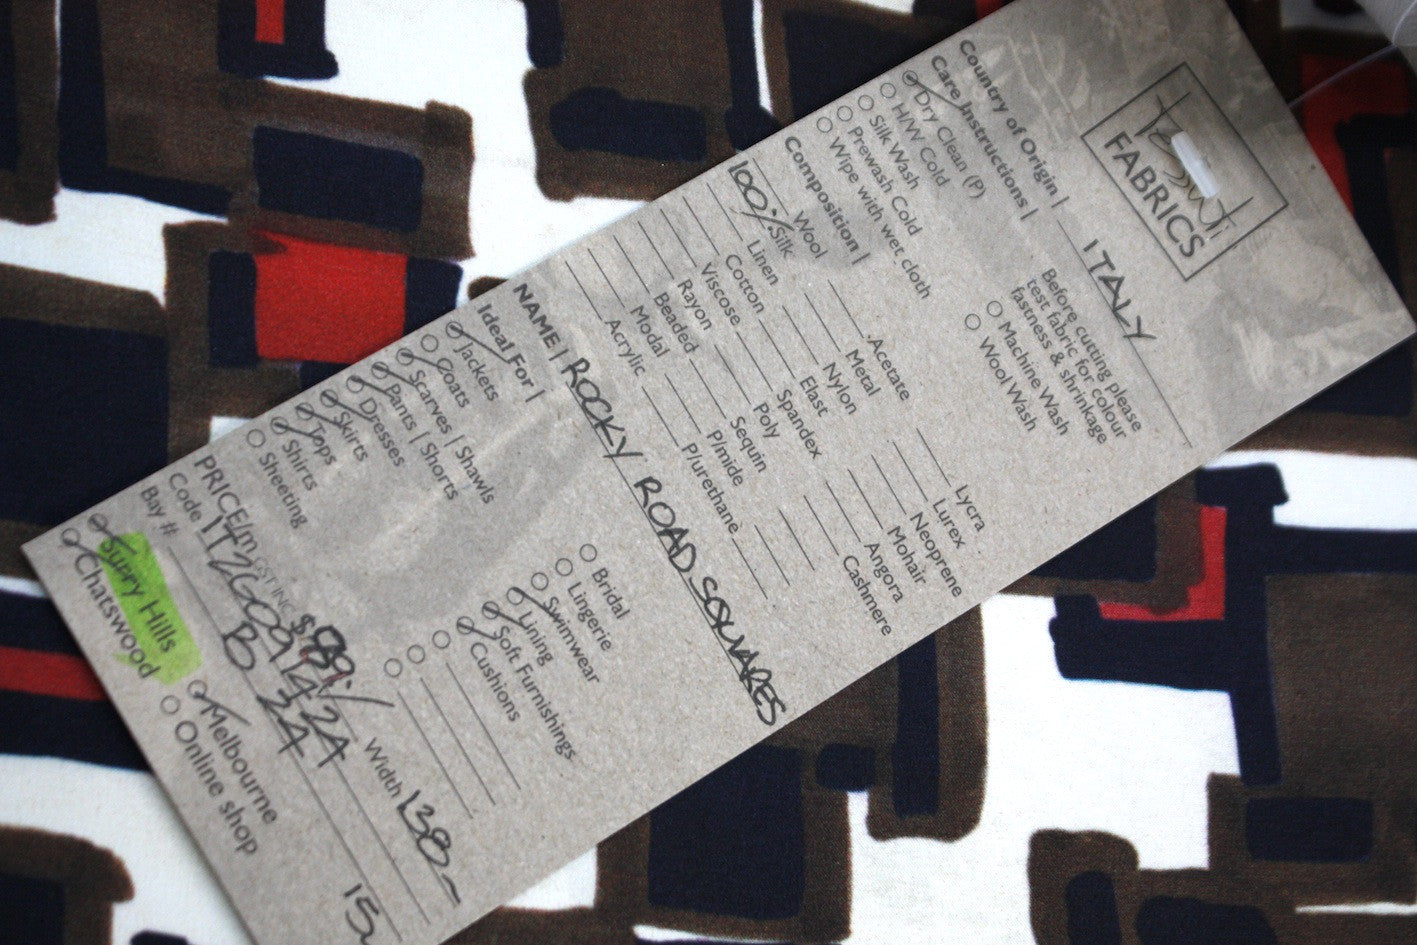 Tessuti
FABRICS
Country of Origin | ITALY
Care Instructions |
Dry Clean (P)
H/W Cold
Silk Wash
Prewash Cold
Wipe with wet cloth
Before cutting please
test fabric for colour
fastness & shrinkage
Machine Wash
Wool Wash
Composition |
Wool
100% Silk
Linen
Cotton
Viscose
Rayon
Beaded
Modal
Acrylic
Acetate
Metal
Nylon
Elast
Spandex
Poly
Sequin
P/mide
P/urethane
Lycra
Lurex
Neoprene
Mohair
Angora
Cashmere
NAME | ROCKY ROAD SQUARES
Ideal For |
Jackets
Coats
Scarves | Shawls
Pants | Shorts
Dresses
Skirts
Tops
Shirts
Sheeting
Bridal
Lingerie
Swimwear
Lining
Soft Furnishings
Cushions
PRICE/m GST INC $
Width 1.38
Code
Bay # B 24
15
Surry Hills
Chatswood
Melbourne
Online shop